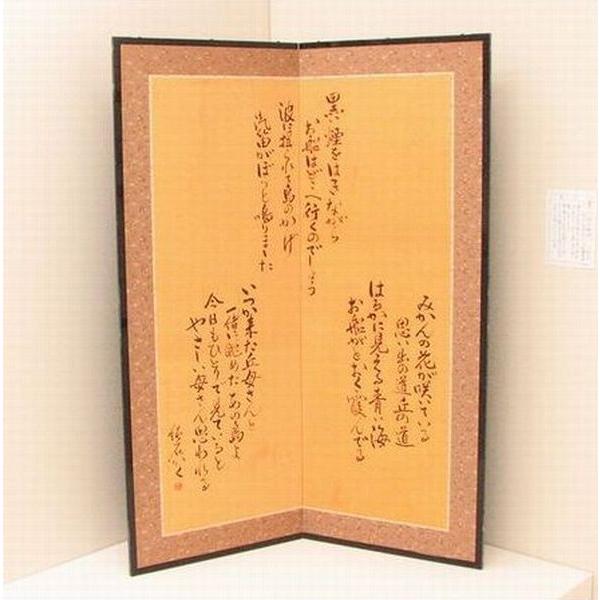 みかんの花が咲いている
思い出の道丘の道
はるかに見える青い海
お船がとおく霞んでる
黒い煙をはきながら
お船はどこへ行くのでしょう
波に揺られて島のかげ
汽笛がぼうと鳴りました
いつか来た丘母さんと
一緒に眺めたあの島よ
今日もひとりで見ていると
やさしい母さん思われる